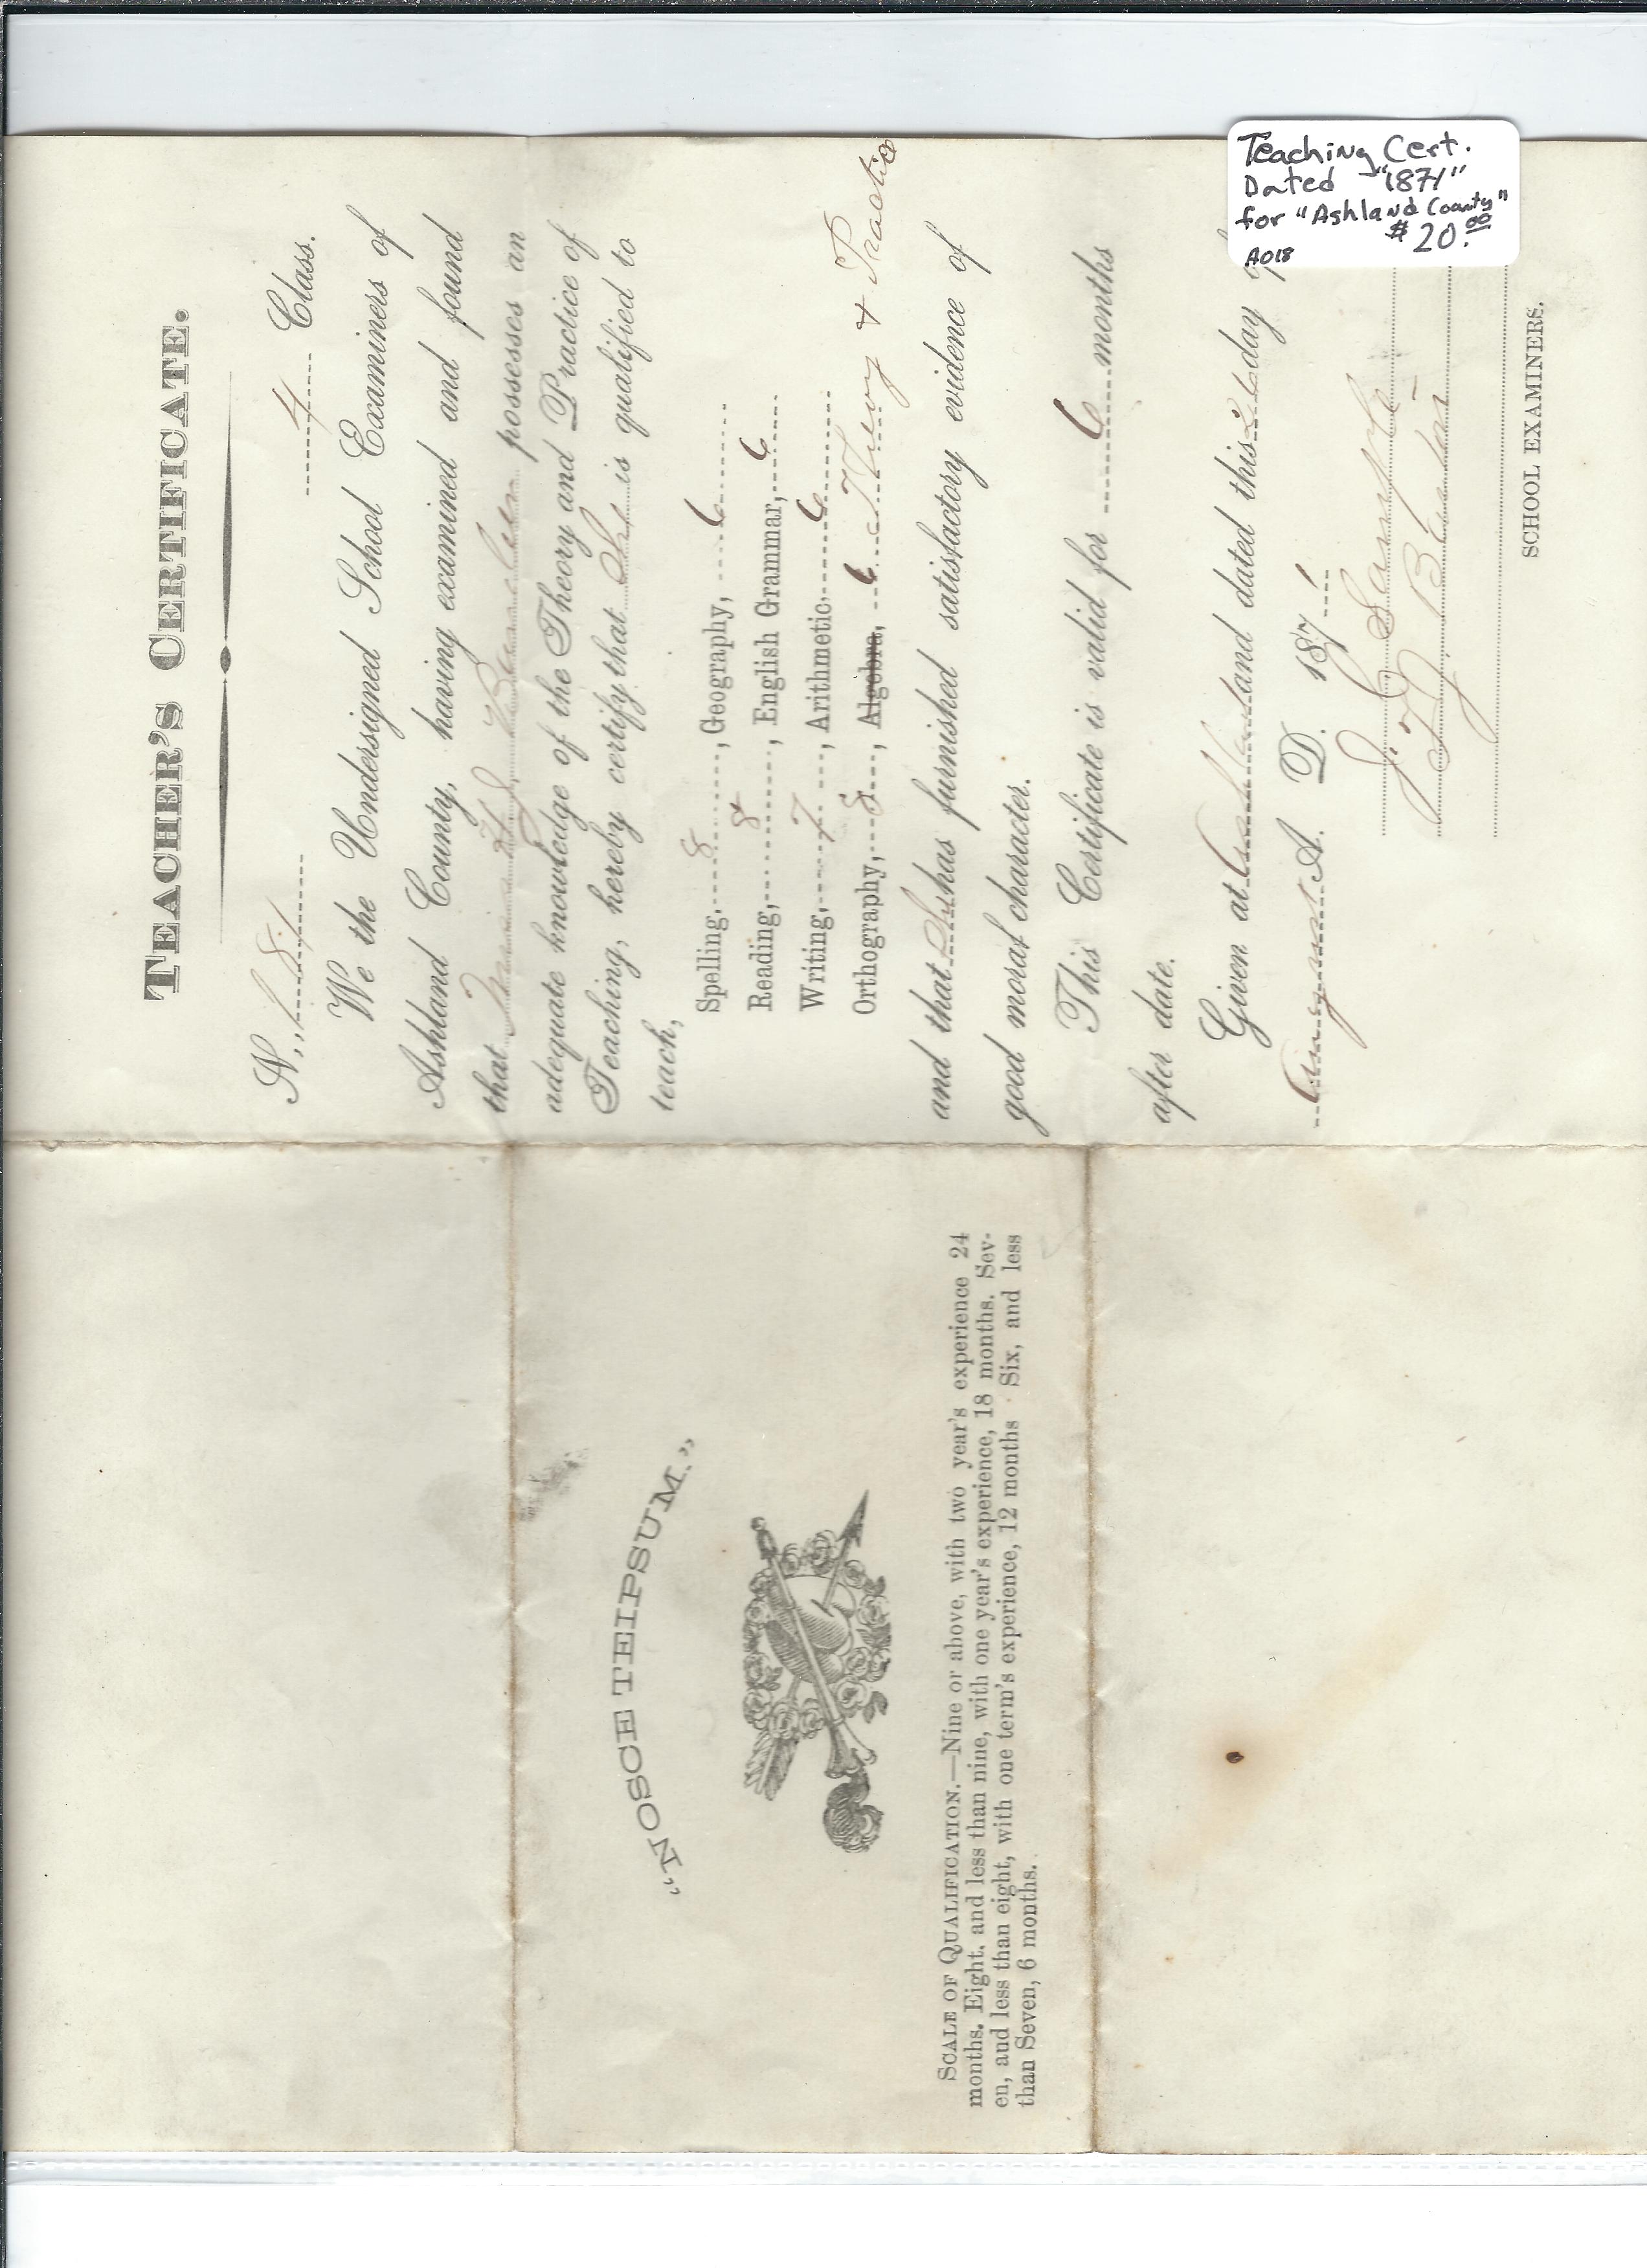 TEACHER'S CERTIFICATE.
N., 181 4 Class.
We the Undersigned School Examiners of
Ashland County, having examined and found
that possesses an
adequate knowledge of the Theory and Practice of
Teaching, hereby certify that She is qualified to
teach,
Spelling, 8, Geography, 6
Reading, 8, English Grammar, 6
Writing, 7, Arithmetic, 6
Orthography, 8, Algebra, 6 Theory & Practice
and that She has furnished satisfactory evidence of
good moral character.
This Certificate is valid for 6 months
after date.
Given at Ashland and dated this 26 day
August A. D. 1871
SCHOOL EXAMINERS.
Teaching Cert.
Dated "1871"
for "Ashland County"
$20.00
A018
"NOSCE TEIPSUM."
SCALE OF QUALIFICATION.—Nine or above, with two year's experience 24
months. Eight, and less than nine, with one year's experience, 18 months. Sev-
en, and less than eight, with one term's experience, 12 months · Six, and less
than Seven, 6 months.